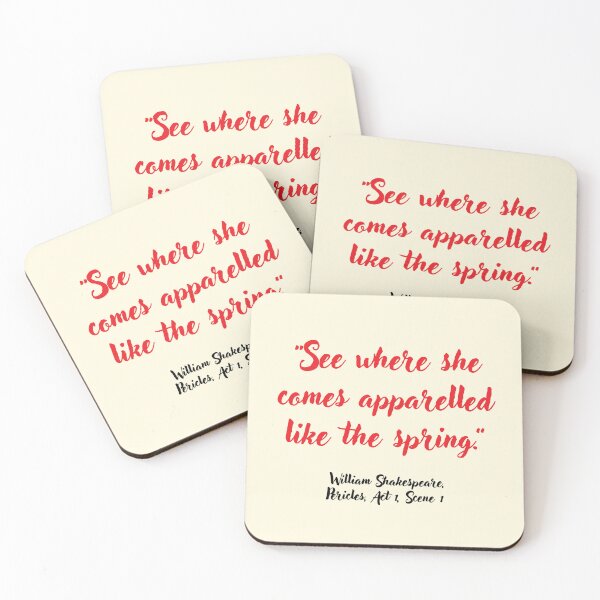 "See where she
comes apparelled
like the spring
"See where she
comes apparelled
like the spring."
"See where she
comes apparelled
like the spring."
William
Pericles, Act 1,
"See where she
comes apparelled
like the spring."
William Shakespeare,
Pericles, Act 1, Scene 1